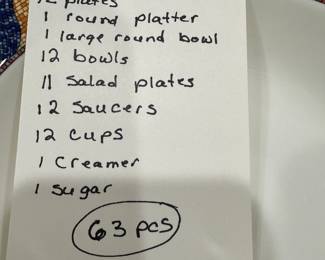 12 plates
1 round platter
1 large round bowl
12 bowls
11 Salad plates
12 Saucers
12 cups
1 Creamer
1 sugar
63 pcs